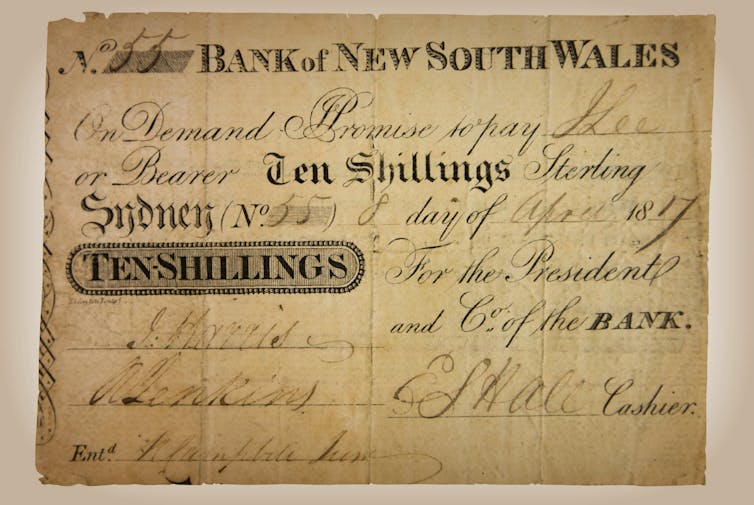 No. 55 BANK of NEW SOUTH WALES
On Demand I Promise to pay J Lee
or Bearer Ten Shillings Sterling
Sydney (No. 55) 8 day of April 1817
TEN-SHILLINGS
For the President
and Co. of the BANK.
J. Harris
A Jenkins
E S Hall Cashier.
Entd. R Campbell Junr